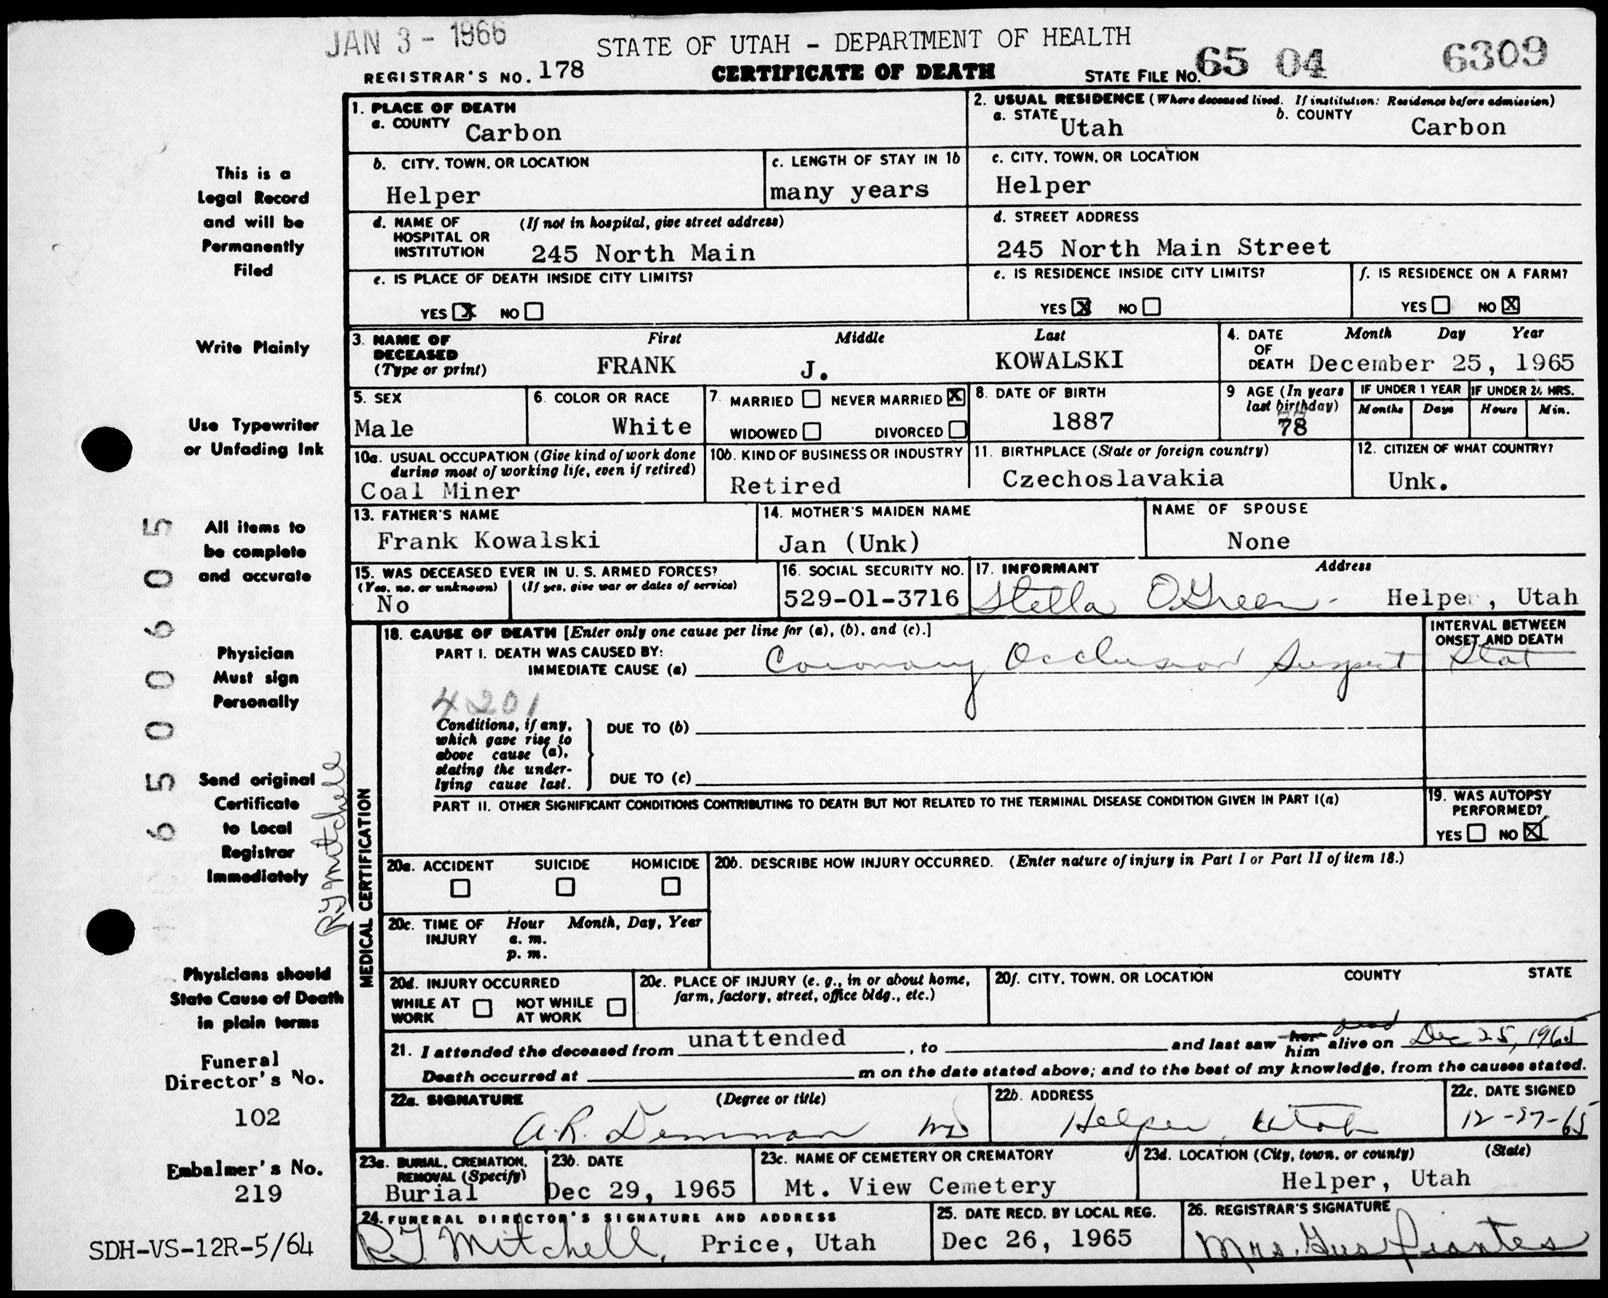 JAN 3 - 1966
STATE OF UTAH - DEPARTMENT OF HEALTH
REGISTRAR'S NO. 178 CERTIFICATE OF DEATH STATE FILE NO. 65 04 6309
1. PLACE OF DEATH
a. COUNTY Carbon
2. USUAL RESIDENCE (Where deceased lived. If institution: Residence before admission)
a. STATE Utah b. COUNTY Carbon
b. CITY, TOWN, OR LOCATION
Helper
c. LENGTH OF STAY IN 1b
many years
c. CITY, TOWN, OR LOCATION
Helper
d. NAME OF HOSPITAL OR INSTITUTION (If not in hospital, give street address)
245 North Main
d. STREET ADDRESS
245 North Main Street
e. IS PLACE OF DEATH INSIDE CITY LIMITS?
YES X NO
e. IS RESIDENCE INSIDE CITY LIMITS?
YES X NO
f. IS RESIDENCE ON A FARM?
YES NO X
3. NAME OF DECEASED (Type or print)
First Middle Last
FRANK J. KOWALSKI
4. DATE OF DEATH Month Day Year
December 25, 1965
5. SEX
Male
6. COLOR OR RACE
White
7. MARRIED NEVER MARRIED X
WIDOWED DIVORCED
8. DATE OF BIRTH
1887
9 AGE (In years last birthday)
78
IF UNDER 1 YEAR IF UNDER 24 HRS.
Months Days Hours Min.
10a. USUAL OCCUPATION (Give kind of work done during most of working life, even if retired)
Coal Miner
10b. KIND OF BUSINESS OR INDUSTRY
Retired
11. BIRTHPLACE (State or foreign country)
Czechoslavakia
12. CITIZEN OF WHAT COUNTRY?
Unk.
13. FATHER'S NAME
Frank Kowalski
14. MOTHER'S MAIDEN NAME
Jan (Unk)
NAME OF SPOUSE
None
15. WAS DECEASED EVER IN U. S. ARMED FORCES?
(Yes, no, or unknown) (If yes, give war or dates of service)
No
16. SOCIAL SECURITY NO.
529-01-3716
17. INFORMANT Address
Stella O'Green - Helper, Utah
MEDICAL CERTIFICATION
18. CAUSE OF DEATH [Enter only one cause per line for (a), (b), and (c).]
PART I. DEATH WAS CAUSED BY:
IMMEDIATE CAUSE (a) Coronary Occlusion Suspect
INTERVAL BETWEEN ONSET AND DEATH
Stat
4201
Conditions, if any, which gave rise to above cause (a), stating the underlying cause last.
DUE TO (b)
DUE TO (c)
PART II. OTHER SIGNIFICANT CONDITIONS CONTRIBUTING TO DEATH BUT NOT RELATED TO THE TERMINAL DISEASE CONDITION GIVEN IN PART I(a)
19. WAS AUTOPSY PERFORMED?
YES NO X
20a. ACCIDENT SUICIDE HOMICIDE
20b. DESCRIBE HOW INJURY OCCURRED. (Enter nature of injury in Part I or Part II of item 18.)
20c. TIME OF INJURY Hour Month, Day, Year
a. m.
p. m.
20d. INJURY OCCURRED
WHILE AT WORK NOT WHILE AT WORK
20e. PLACE OF INJURY (e. g., in or about home, farm, factory, street, office bldg., etc.)
20f. CITY, TOWN, OR LOCATION COUNTY STATE
21. I attended the deceased from unattended, to and last saw her him dead alive on Dec 25, 1965
Death occurred at m on the date stated above; and to the best of my knowledge, from the causes stated.
22a. SIGNATURE (Degree or title)
A.R. Demman MD
22b. ADDRESS
Helper, Utah
22c. DATE SIGNED
12-27-65
23a. BURIAL, CREMATION, REMOVAL (Specify)
Burial
23b. DATE
Dec 29, 1965
23c. NAME OF CEMETERY OR CREMATORY
Mt. View Cemetery
23d. LOCATION (City, town, or county) (State)
Helper, Utah
24. FUNERAL DIRECTOR'S SIGNATURE AND ADDRESS
R J Mitchell, Price, Utah
25. DATE RECD. BY LOCAL REG.
Dec 26, 1965
26. REGISTRAR'S SIGNATURE
Mrs. Gus
This is a
Legal Record
and will be
Permanently
Filed
Write Plainly
Use Typewriter
or Unfading Ink
All items to
be complete
and accurate
Physician
Must sign
Personally
Send original
Certificate
to Local
Registrar
Immediately
Physicians should
State Cause of Death
in plain terms
Funeral
Director's No.
102
Embalmer's No.
219
SDH-VS-12R-5/64
65 00605
R J Mitchell